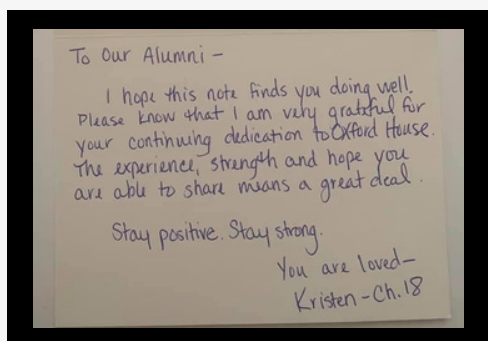 To Our Alumni –
I hope this note finds you doing well.
Please know that I am very grateful for
your continuing dedication to Oxford House.
The experience, strength and hope you
are able to share means a great deal.
Stay positive. Stay strong.
You are loved –
Kristen – Ch. 18